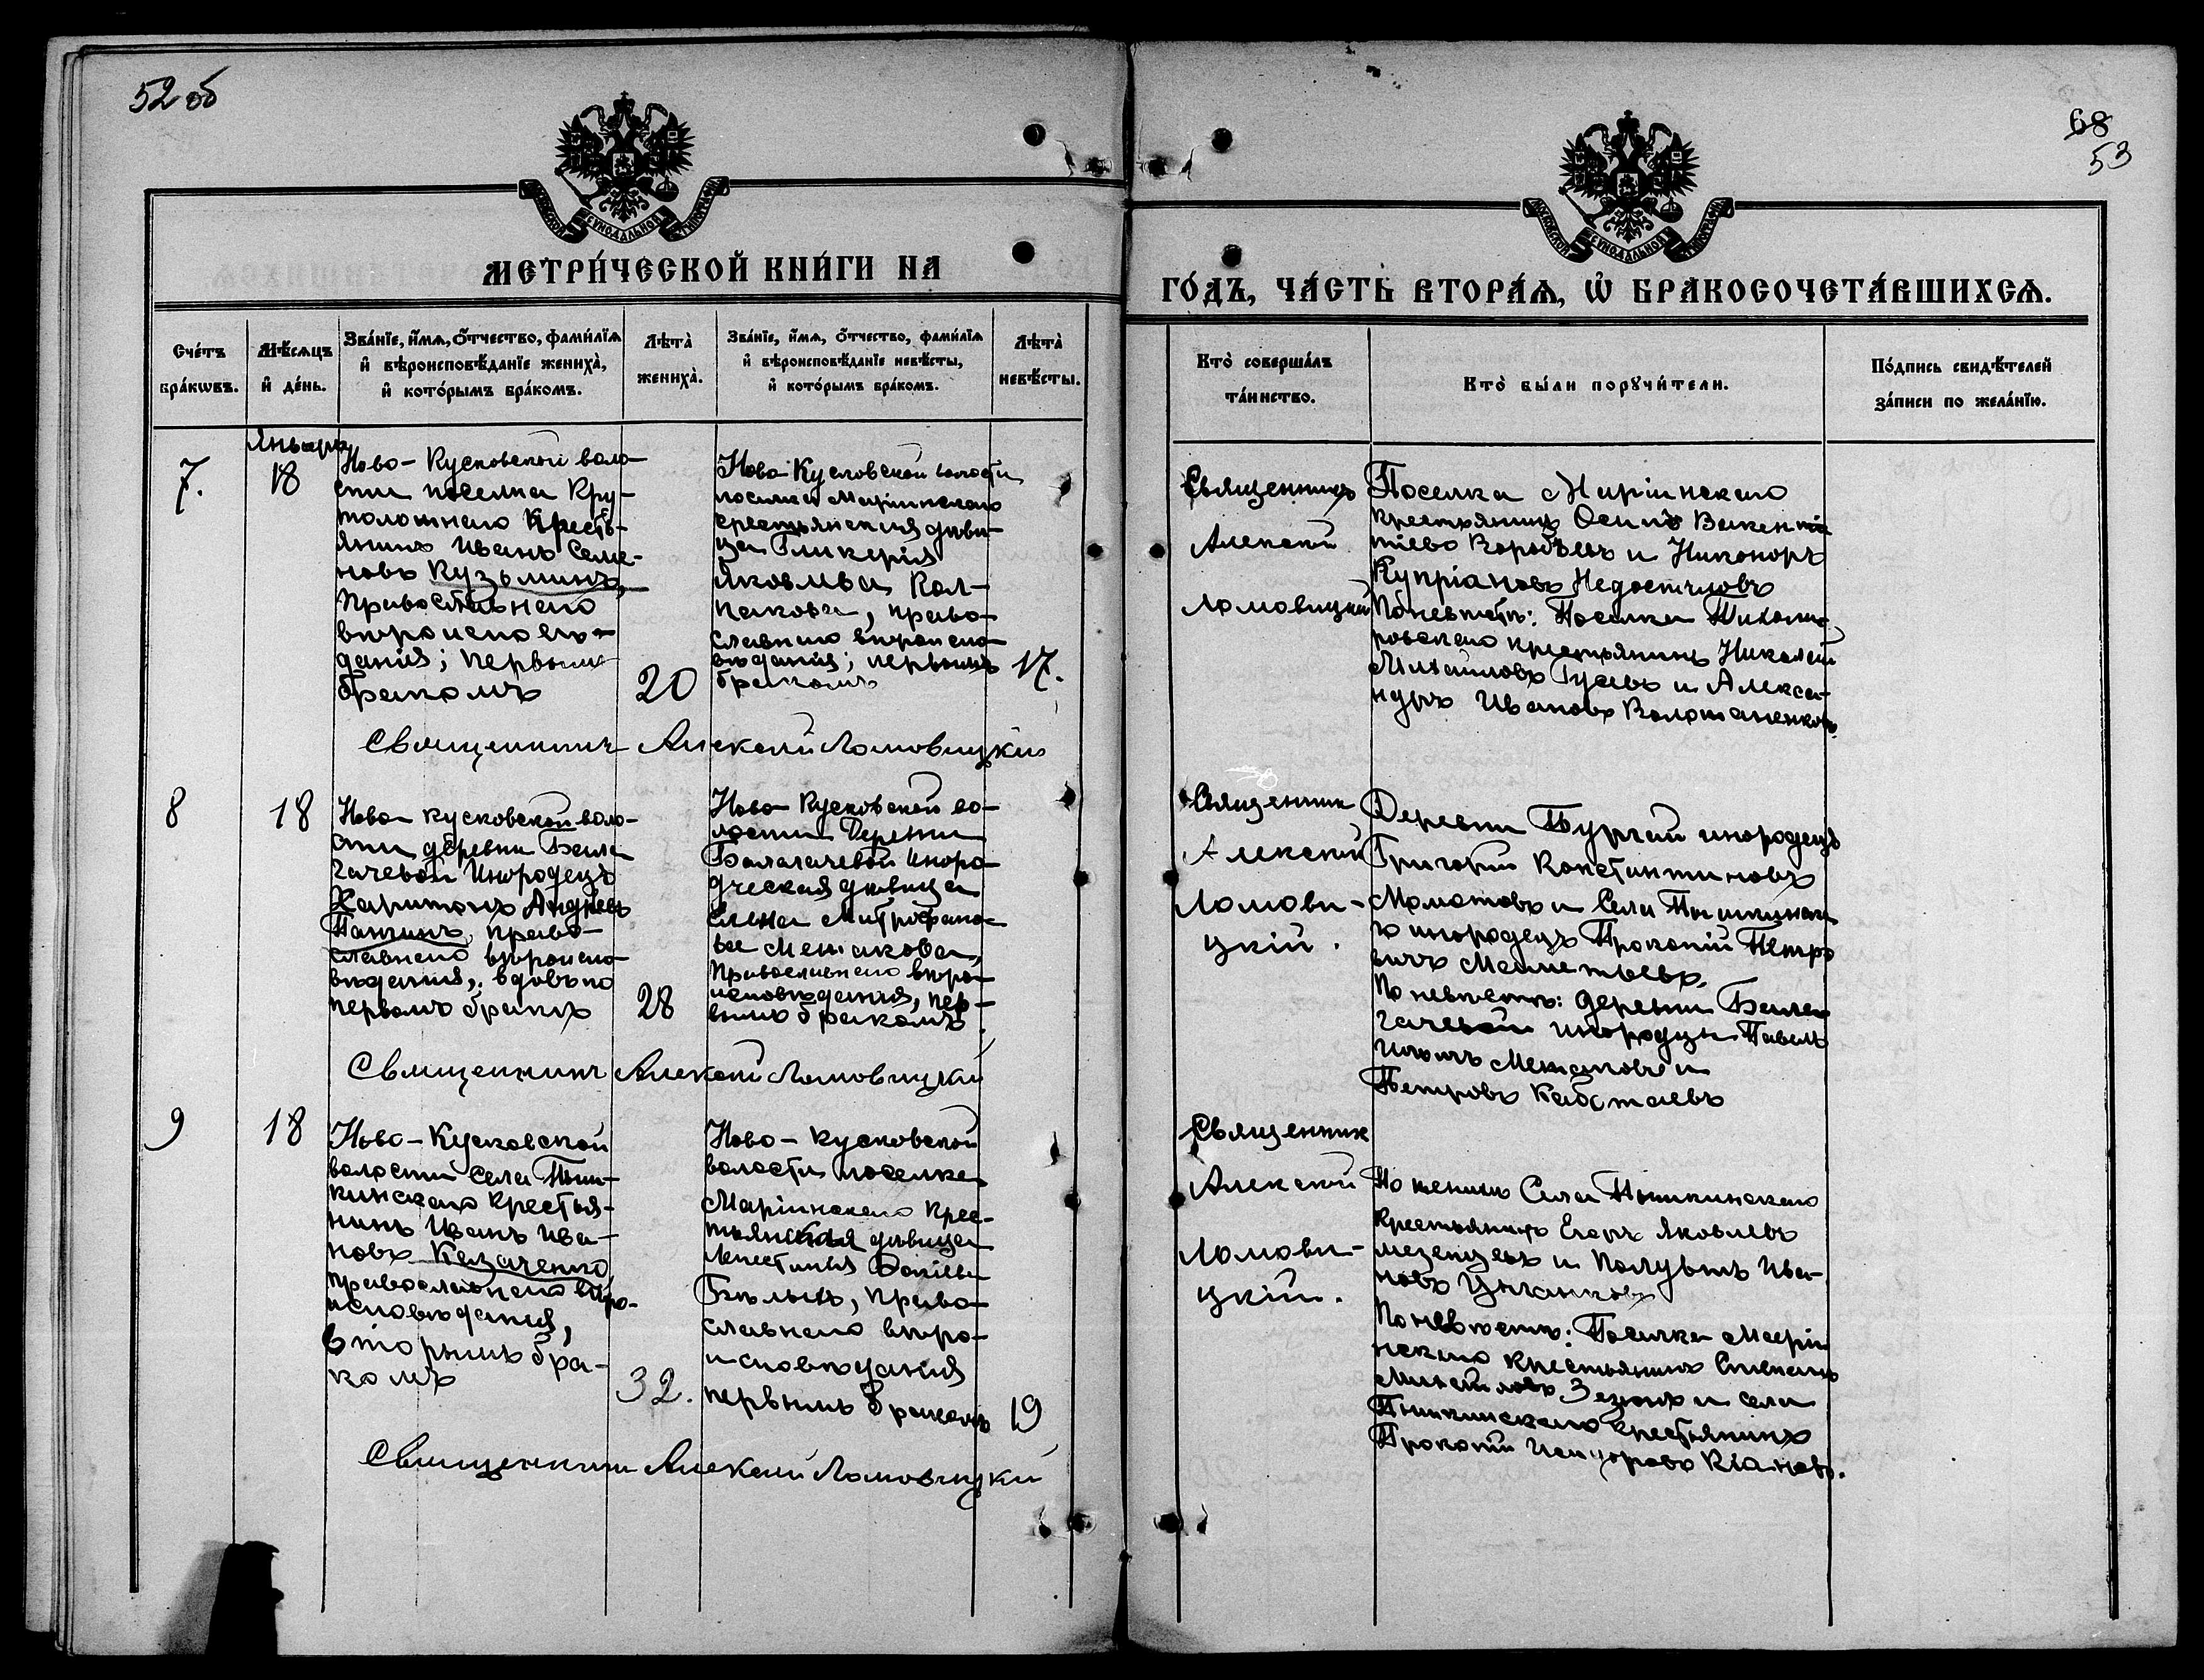 52 об
68
53
МОСКОВСКОЙ СѴНОДАЛЬНОЙ ТИПОГРАФІИ
МОСКОВСКОЙ СѴНОДАЛЬНОЙ ТИПОГРАФІИ
МЕТРИ́ЧЕСКОЙ КНИ́ГИ НА
ГО́ДЪ, ЧА́СТЬ ВТОРА́Ѧ, Ѽ БРАКОСОЧЕТА́ВШИХСѦ.
Сче́тъ бра́кѡвъ.
Мѣ́сяцъ и҆ де́нь.
Зва́нїе, и҆́мѧ, о҆́тчество, фами́лїѧ и҆ вѣроисповѣ́данїе женихà, и҆ кото́рымъ бра́комъ.
Лѣ́та женихà.
Зва́нїе, и҆́мѧ, о҆́тчество, фами́лїѧ и҆ вѣроисповѣ́данїе невѣ́сты, и҆ кото́рымъ бра́комъ.
Лѣ́та невѣ́сты.
Кто̀ соверша́лъ та́инство.
Кто̀ бы́ли порꙋчи́тели.
По́дпись свидѣ́телей за́писи по жела́нїю.
7.
Январь
18
Ново-Кусковской воло-
сти поселка Кру-
толожнаго Кресть-
янинъ Иванъ Семе-
новъ Кузьминъ,
православнаго
вѣроиспове-
данія; первымъ
бракомъ
20
Ново Кусковской волости
поселка Маріинскаго
крестьянская дѣви-
ца Гликерія
Яковлева Кол-
пакова, право-
славнаго вѣроиспо-
вѣданія; первымъ
бракомъ
17.
Священникъ
Алексій
Ломовицкій
Поселка Маріинскаго
крестьянинъ Осипъ Викен
тіевъ Воробьевъ и Никоноръ
Купріановъ
По невѣстѣ: Поселка Тихоми-
ровскаго крестьянинъ Николай
Михайловъ Гусевъ и Алекса-
ндръ Ивановъ
Священникъ Алексій Ломовицкій
8
18
Ново Кусковской воло-
сти деревни Бала-
гачевой Инородецъ
Харитонъ Андреевъ
православнаго вѣроиспо-
вѣданія, вдовъ по
первомъ бракѣ
28
Ново Кусковской во-
лости Деревни
Балагачевой Иноро-
дческая дѣвица
Елена Митрофано-
ва
Православнаго вѣро-
исповѣданія, пер-
вымъ бракомъ
Священникъ
Алексій
Ломови-
цкій.
Деревни инородецъ
Григорій Константиновъ
и Села Пышкинска-
го инородецъ Прокопій Петро
вичъ
По невѣстѣ: деревни Бала-
гачевой инородцы Павелъ
и
Петровъ
Священникъ Алексій Ломовицкій
9
18
Ново-Кусковской
волости Села Пыш-
кинскаго Крестья-
нинъ Иванъ Ива-
новъ Казаченко
православнаго вѣро-
исповѣданія,
вторымъ бра-
комъ
32.
Ново-Кусковской
волости поселка
Маріинскаго Крес-
тьянская дѣвица
православнаго вѣро-
исповѣданія
первымъ бракомъ
19
Священник
Алексій
Ломови-
цкій.
По жениху Села Пышкинскаго
Крестьянинъ Егоръ Яковлевъ
Мезенцевъ и Ива-
новъ
По невѣстѣ: Поселка Маріи
нскаго крестьянинъ Степанъ
и села
Пышкинскаго крестьянинъ
Прокопій
Священникъ Алексій Ломовицкій